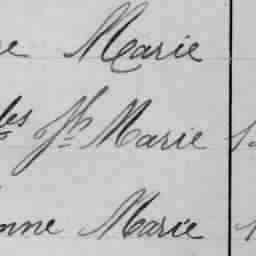 e Marie
les Jh Marie
onne Marie